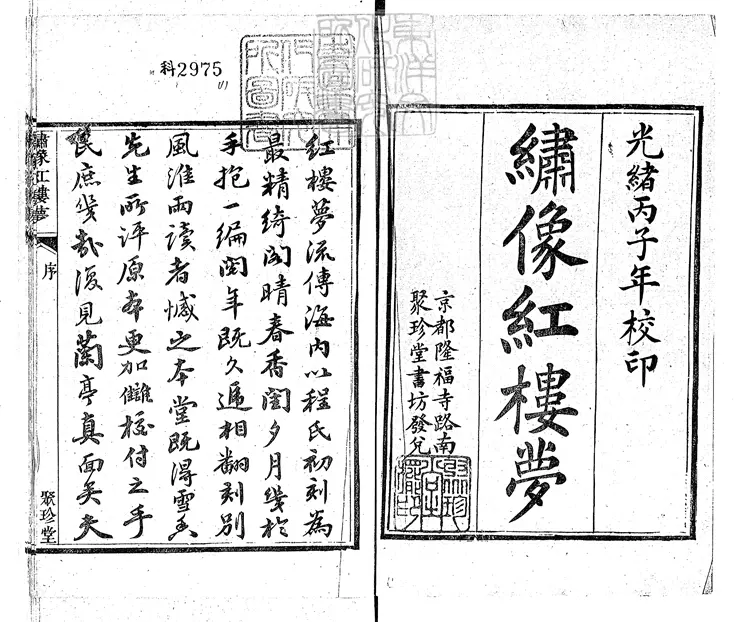 科2975
光緒丙子年校印
繡像紅樓夢
京都隆福寺路南
聚珍堂書坊發兌
紅樓夢流傳海內以程氏初刻為
最精綺閣晴春香閨夕月幾於
手抱一編閱年既久遞相翻刻別
風淮雨讀者憾之本堂既得雪香
先生所評原本更加讎校付之手
民庶幾哉復見蘭亭真面矣夫
繡像紅樓夢
序
聚珍堂